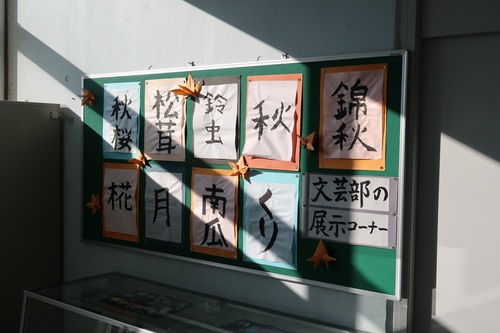 秋桜
松茸
鈴虫
秋
錦秋
椛
月
南瓜
くり
文芸部の
展示コーナー